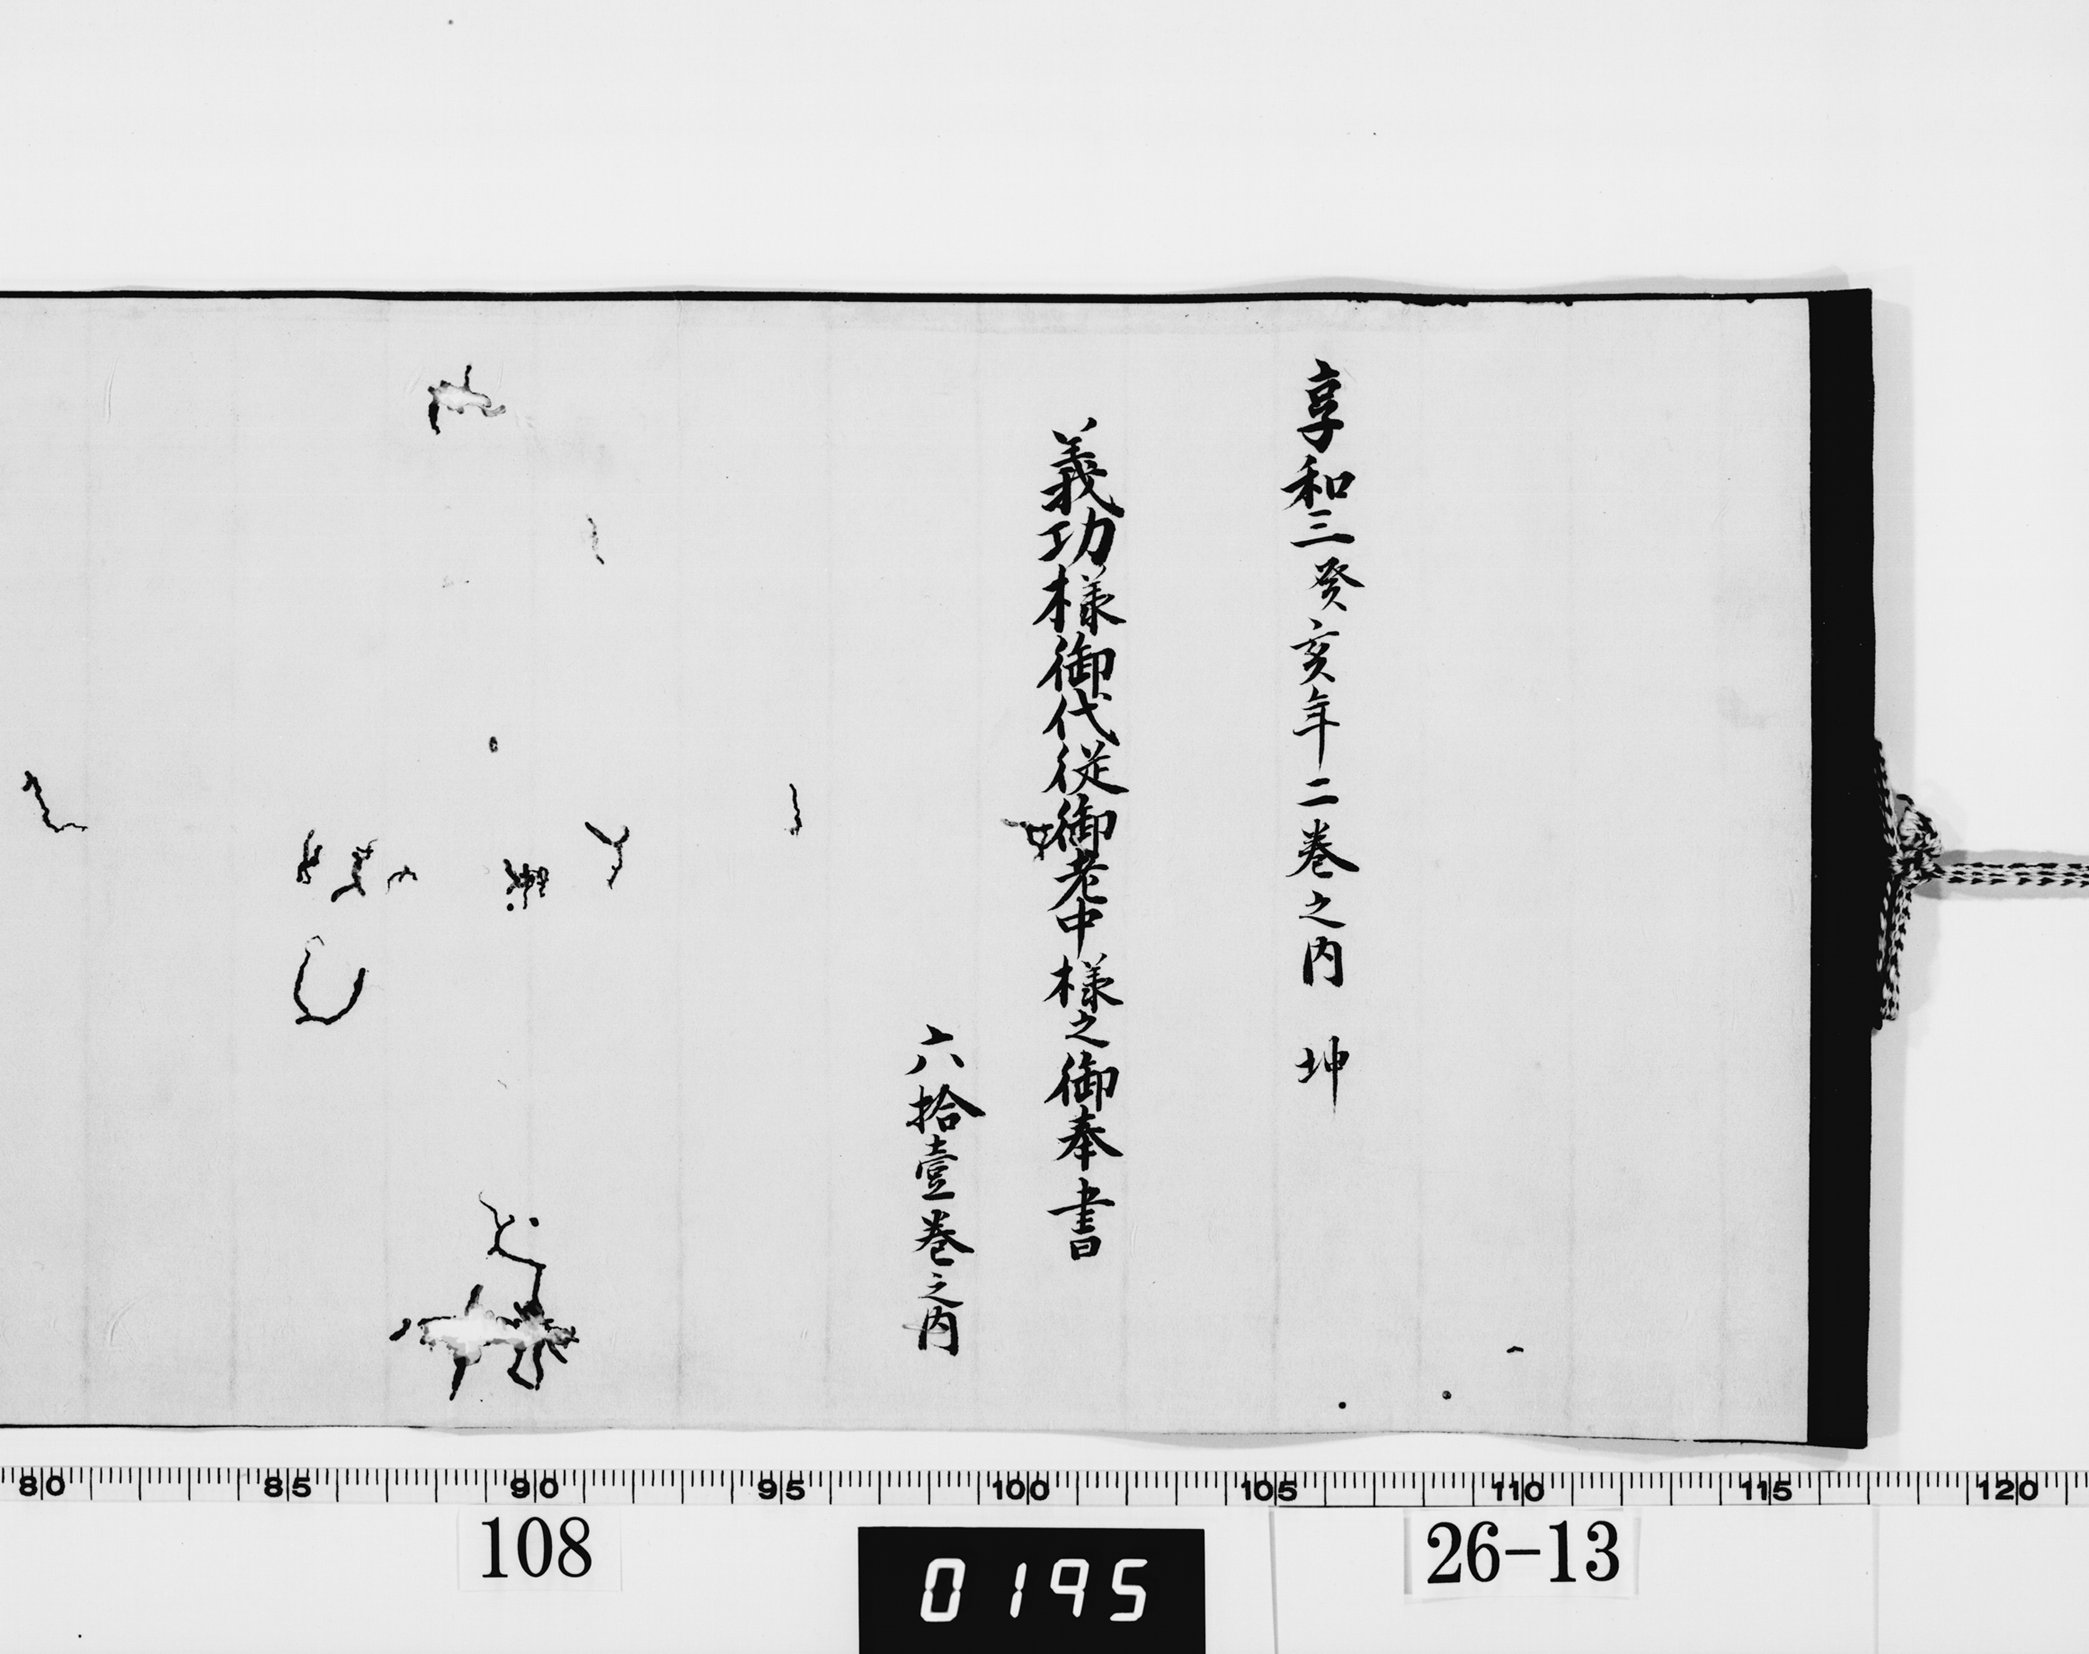 享和三癸亥年二巻之内　坤
義功様御代従御老中様之御奉書
六拾壹巻之内
80 85 90 95 100 105 110 115 120
108
0195
26-13